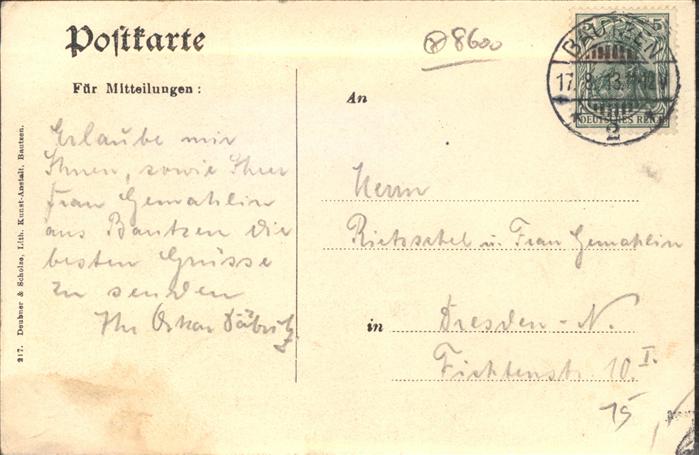 Postkarte
8600
BAUTZEN
17.8.13. 11-12 V
2
5
DEUTSCHES REICH
Für Mitteilungen:
Erlaube mir
Ihnen, sowie Ihrer
Frau Gemahlin
aus Bautzen die
besten Grüsse
zu senden
Ihr Oskar
An
Herrn
Rietzschel u. Frau Gemahlin
in Dresden-N.
Fichtenstr. 10. I.
15
217. Deubner & Scholze, Lith. Kunst-Anstalt, Bautzen.